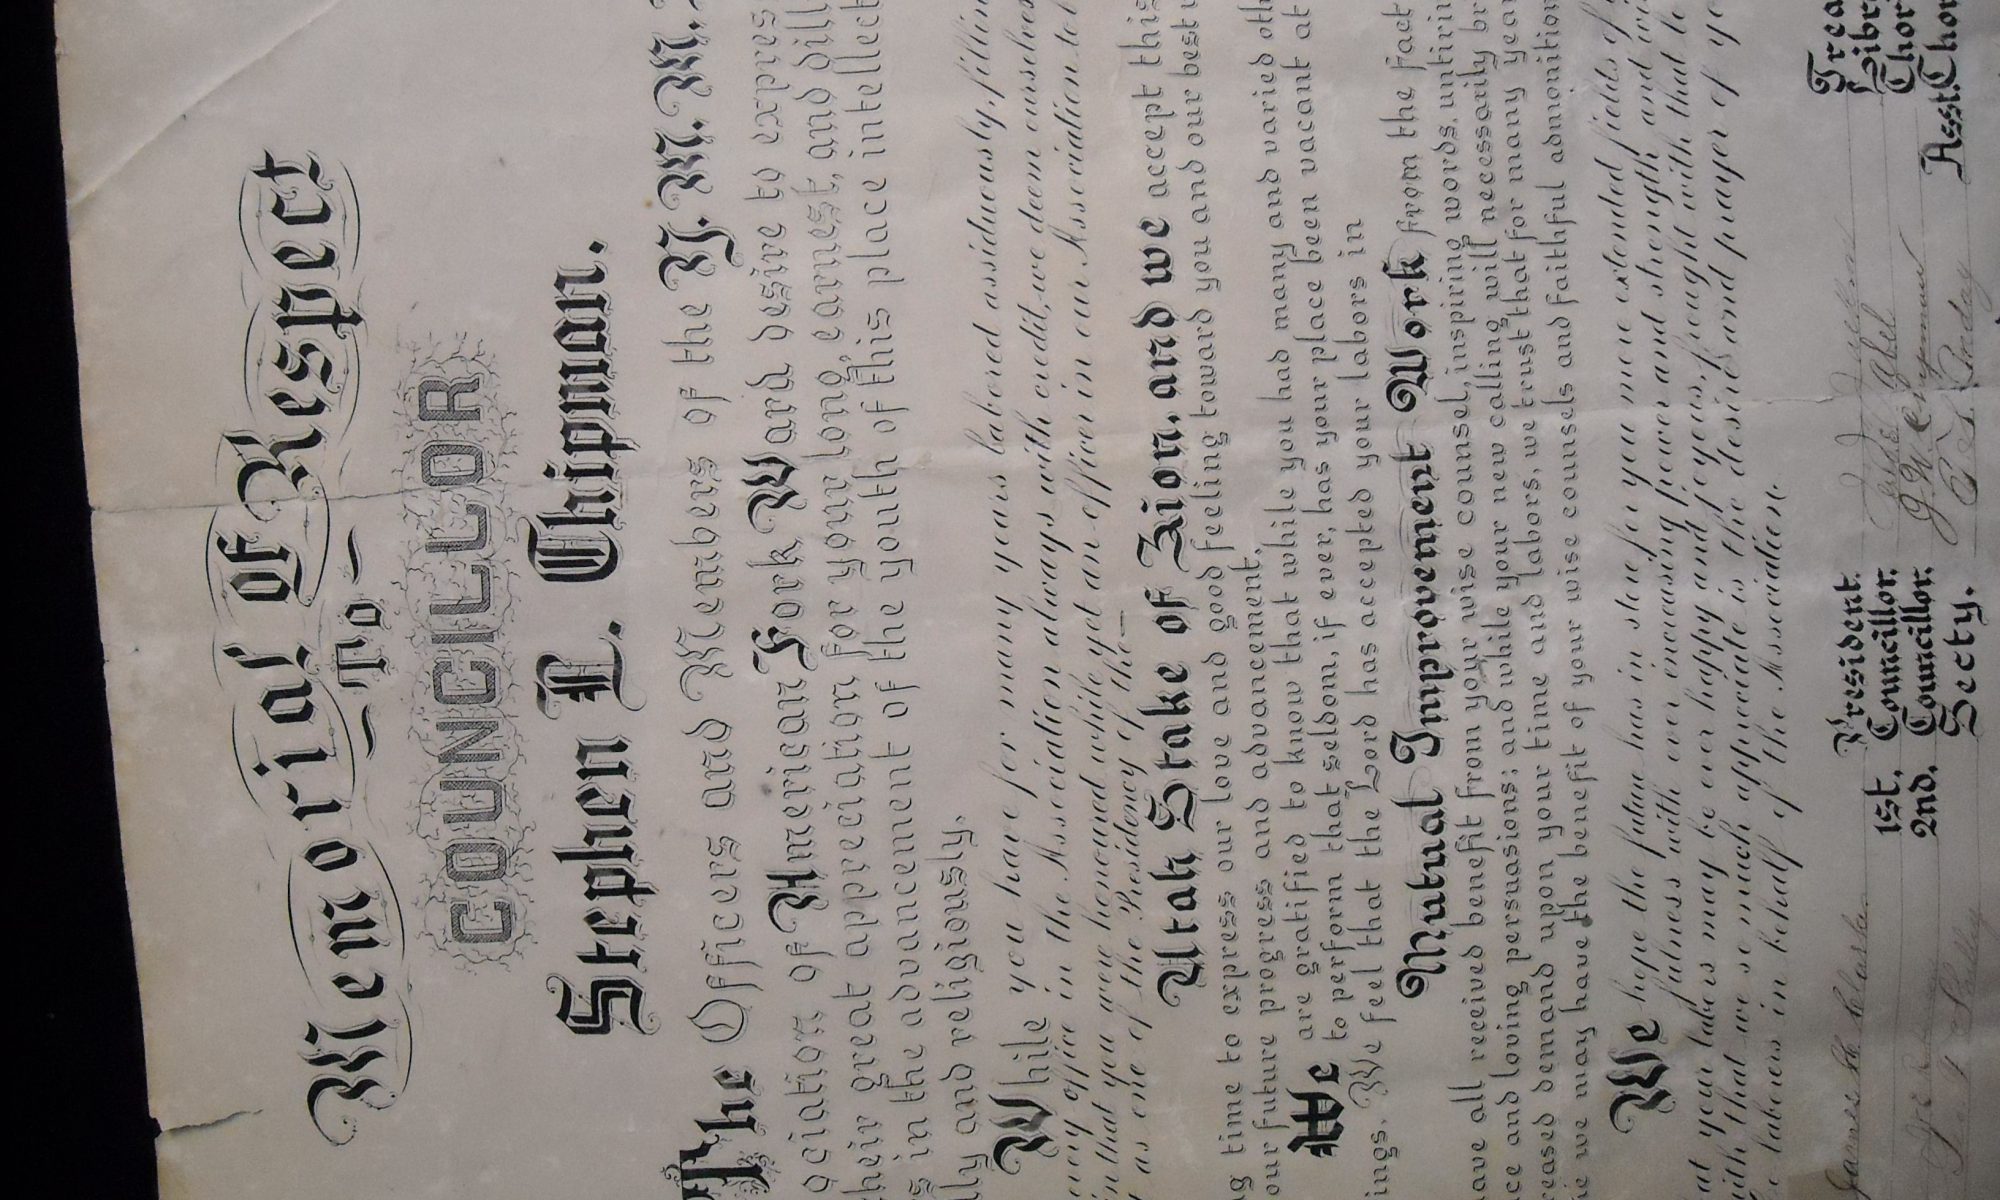 Memorial of Respect
To
COUNCILLOR
Stephen L. Chipman.
The Officers and Members of the Y. M. M.
ciation of American Fork Ward desire to express
their great appreciation for your long, earnest, and
in the advancement of the youth of this place intellect
ly and religiously.
While you have for many years labored assiduously, filling
every office in the Association always with credit, we deem ourselves
in that you were honored while yet an officer in our Association to
as one of the Presidency of the
Utah Stake of Zion, and we accept this
time to express our love and good feeling toward you and our best
our future progress and advancement.
We are gratified to know that while you had many and varied
to perform that seldom, if ever, has your place been vacant at
ings. We feel that the Lord has accepted your labors in
Mutual Improvement Work from the fact
have all received benefit from your wise counsel, inspiring words, untirin
ce and loving persuasions; and while your new calling will necessarily
reased demand upon your time and labors, we trust that for many years
we may have the benefit of your wise counsels and faithful admonition
We hope the future has in store for you more extended fields of
fulness with ever increasing power and strength and
at your labors may be ever happy and joyous, fraught with that
with that we so much appreciate is the desire and prayer of
laborers in behalf of the Association.
James H. Clarke President.
1st. Councillor.
2nd. Councillor.
Secty.
Abel
Asst. Chor